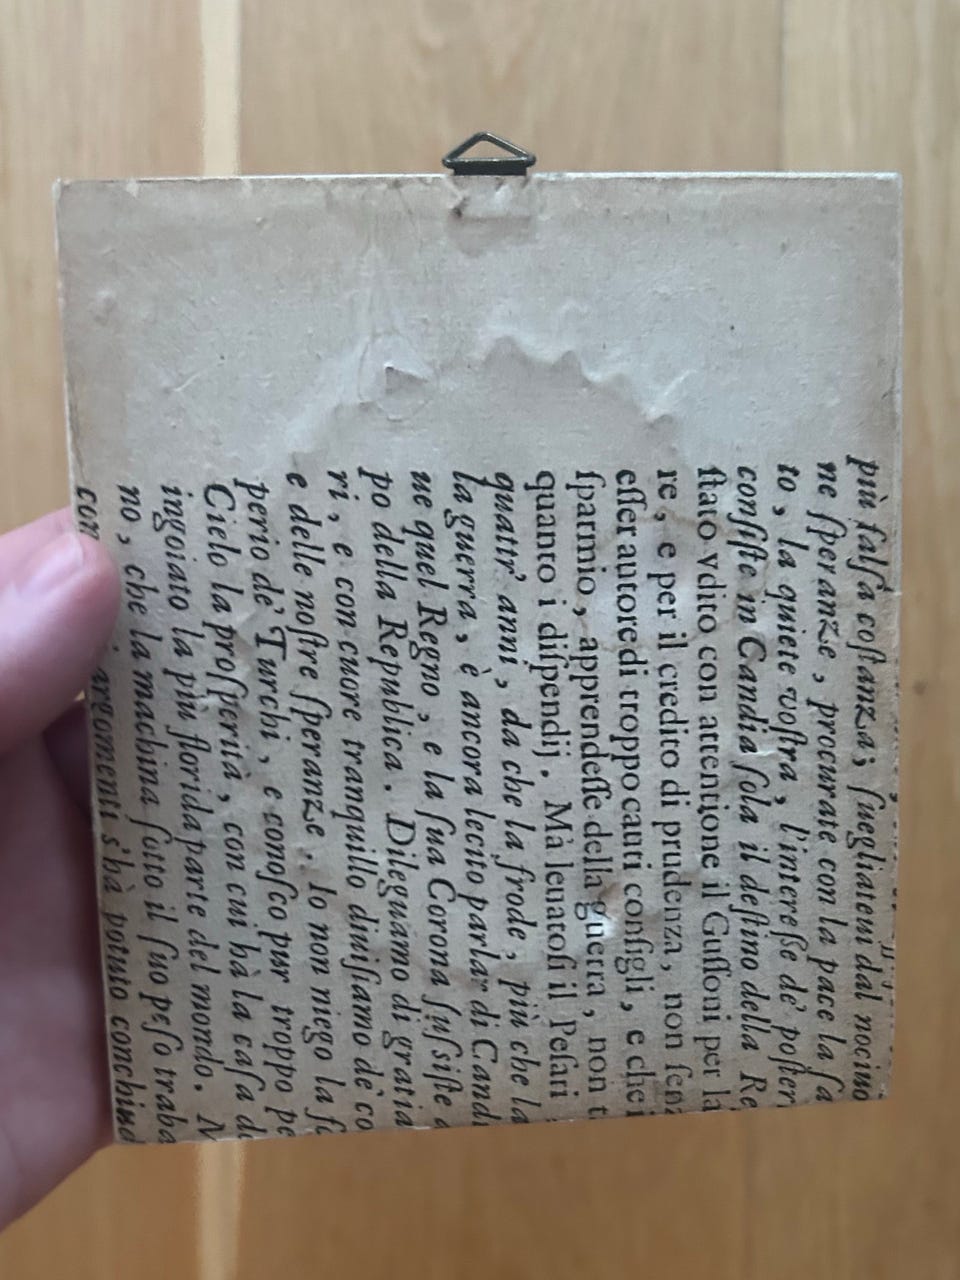 più falſa coſtanza; ſuegliateui dal nociuo
ne ſperanze, procurate con la pace la ſa
to, la quiete voſtra, l'intereſſe de' poſteri
conſiſte in Candia ſola il deſtino della Re
ſtato vdito con attentione il Guſſoni per la
re, e per il credito di prudenza, non ſenz
eſſer autore di troppo cauti conſigli, e che i
ſparmio, apprendeſſe della guerra, non t
quanto i diſpendij. Mà leuatoſi il Peſari
quattr' anni, da che la frode, più che la
la guerra, è ancora lecito parlar di Candi
ne quel Regno, e la ſua Corona ſuſſiſte
po della Republica. Dileguamo di gratia
ri, e con cuore tranquillo diuiſiamo de' co
e delle noſtre ſperanze. Io non niego la fo
perio de' Turchi, e conoſco pur troppo pe
Cielo la proſperità, con cui hà la caſa de
ingoiato la più florida parte del mondo. N
no, che la machina ſotto il ſuo peſo traba
argomenti s'hà potuto conchiud